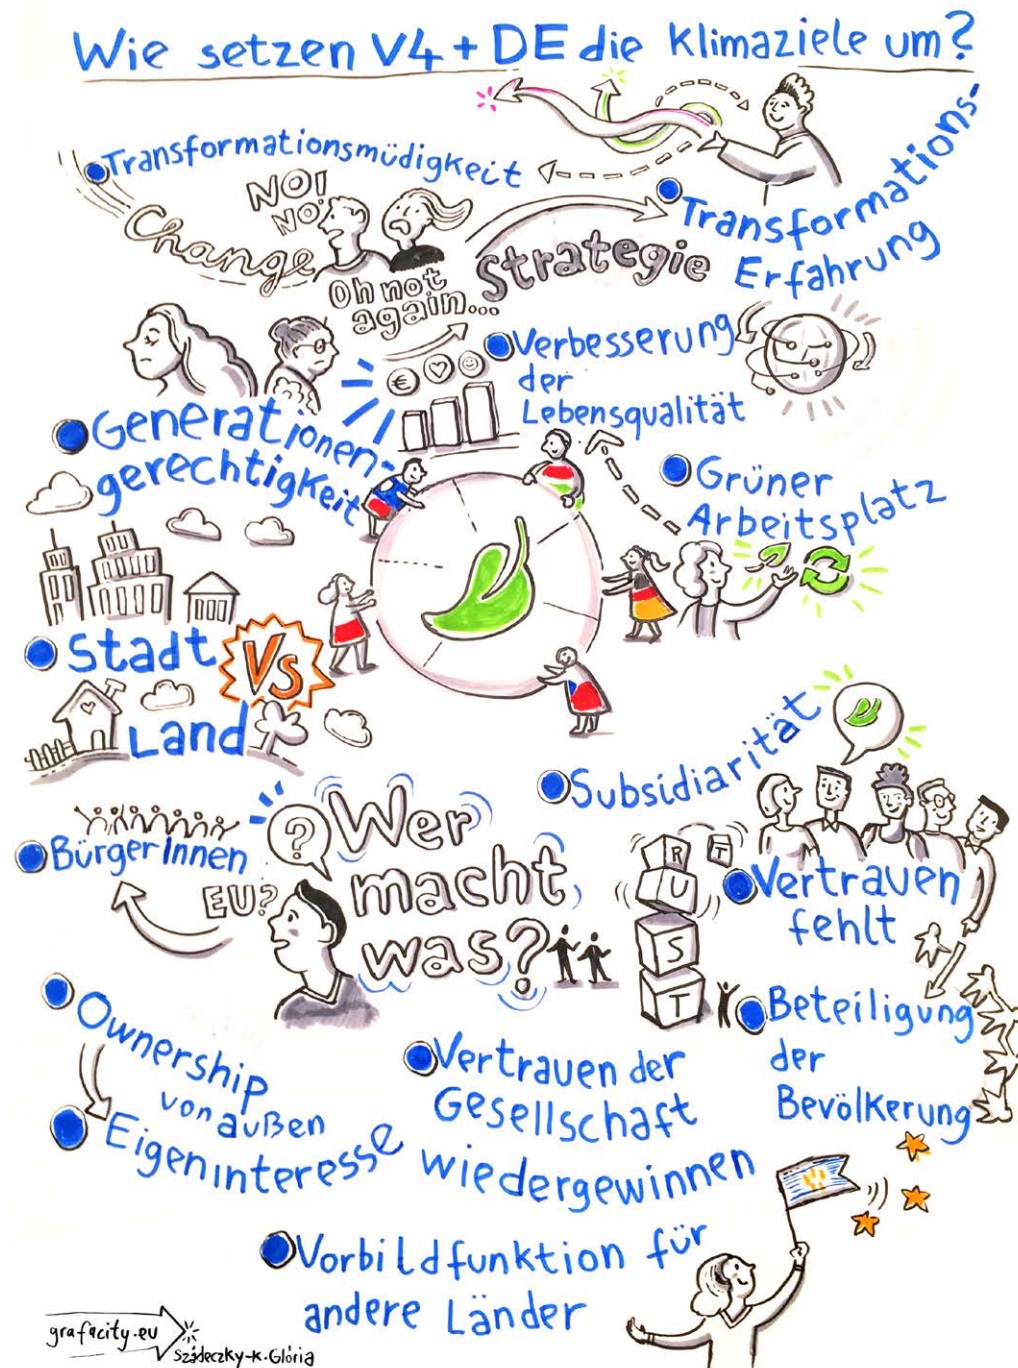 Wie setzen V4 + DE die Klimaziele um?
Transformationsmüdigkeit
NO!
NO!
Change
Oh not
again...
Strategie
Transformations-
Erfahrung
Verbesserung
der
Lebensqualität
€
Generationen-
gerechtigkeit
Grüner
Arbeitsplatz
Stadt
Vs
Land
Subsidiarität
BürgerInnen
EU?
?
Wer
macht
was?
R
T
U
S
T
Vertrauen
fehlt
Beteiligung
der
Bevölkerung
Ownership
von außen
Eigeninteresse
Vertrauen der
Gesellschaft
wiedergewinnen
Vorbildfunktion für
andere Länder
grafacity.eu
Szádeczky-K. Glória